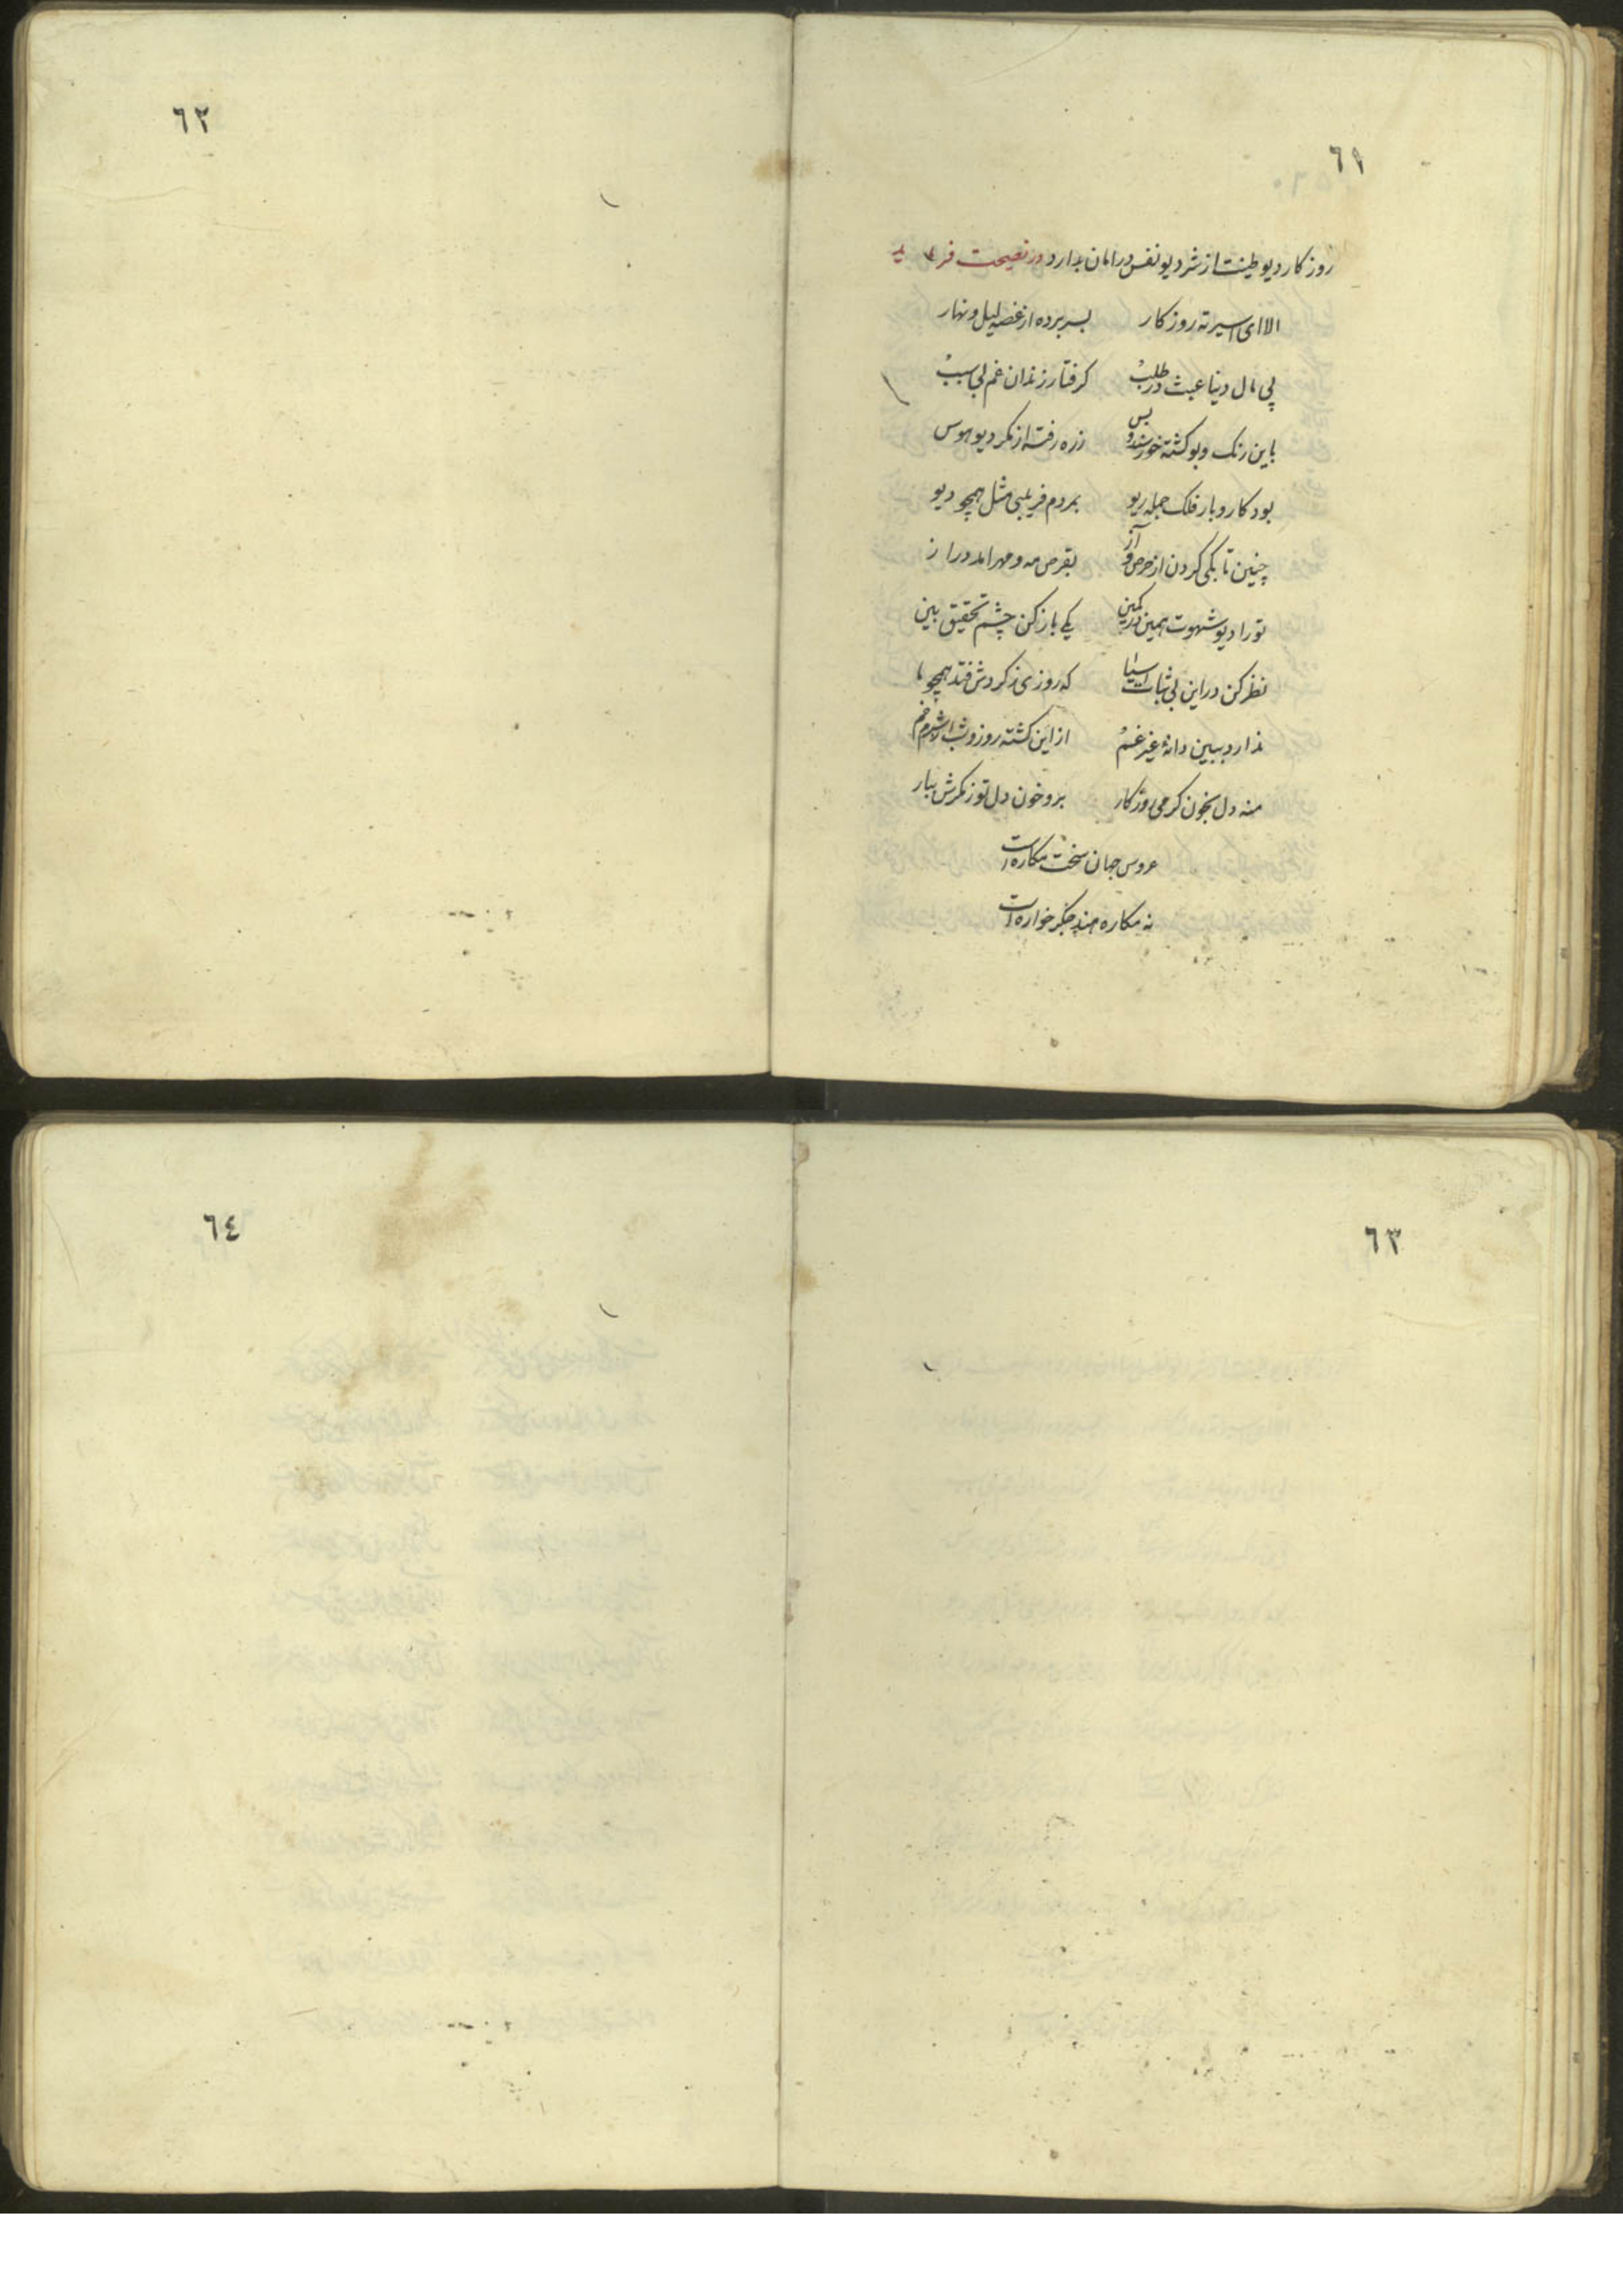 ٦١
روزكار ديو طينت از شر ديو نفس در امان بدارد در نصيحت فرمايد
الا اى اسير ته روزكار بسر برده از غصه ليل و نهار
پى مال دنيا عبث در طلب كرفتار زندان غم بى سبب
باين رنك و بو كشته خورسند و بس ز ره رفته از مكر ديو هوس
بود كار و بار فلك جمله ريو بمردم فريبى مثل همچو ديو
چنين تا بكى كردن از حرص و آز بقرص مه و مهر امد دراز
تو را ديو شهوت همين در كمين يكى باز كن چشم تحقيق بين
نظر كن در اين بى ثبات اسيا كه روزى ز كردش فتد همچو ما
ندارد ببين دانۀ غير غم از اين كشته روز و شب
منه دل بخون كرمى روزكار برو خون دل تو ز مكرش ببار
عروس جهان سخت مكاره است
نه مكاره هند جكر خواره است
٦٢
٦٣
٦٤